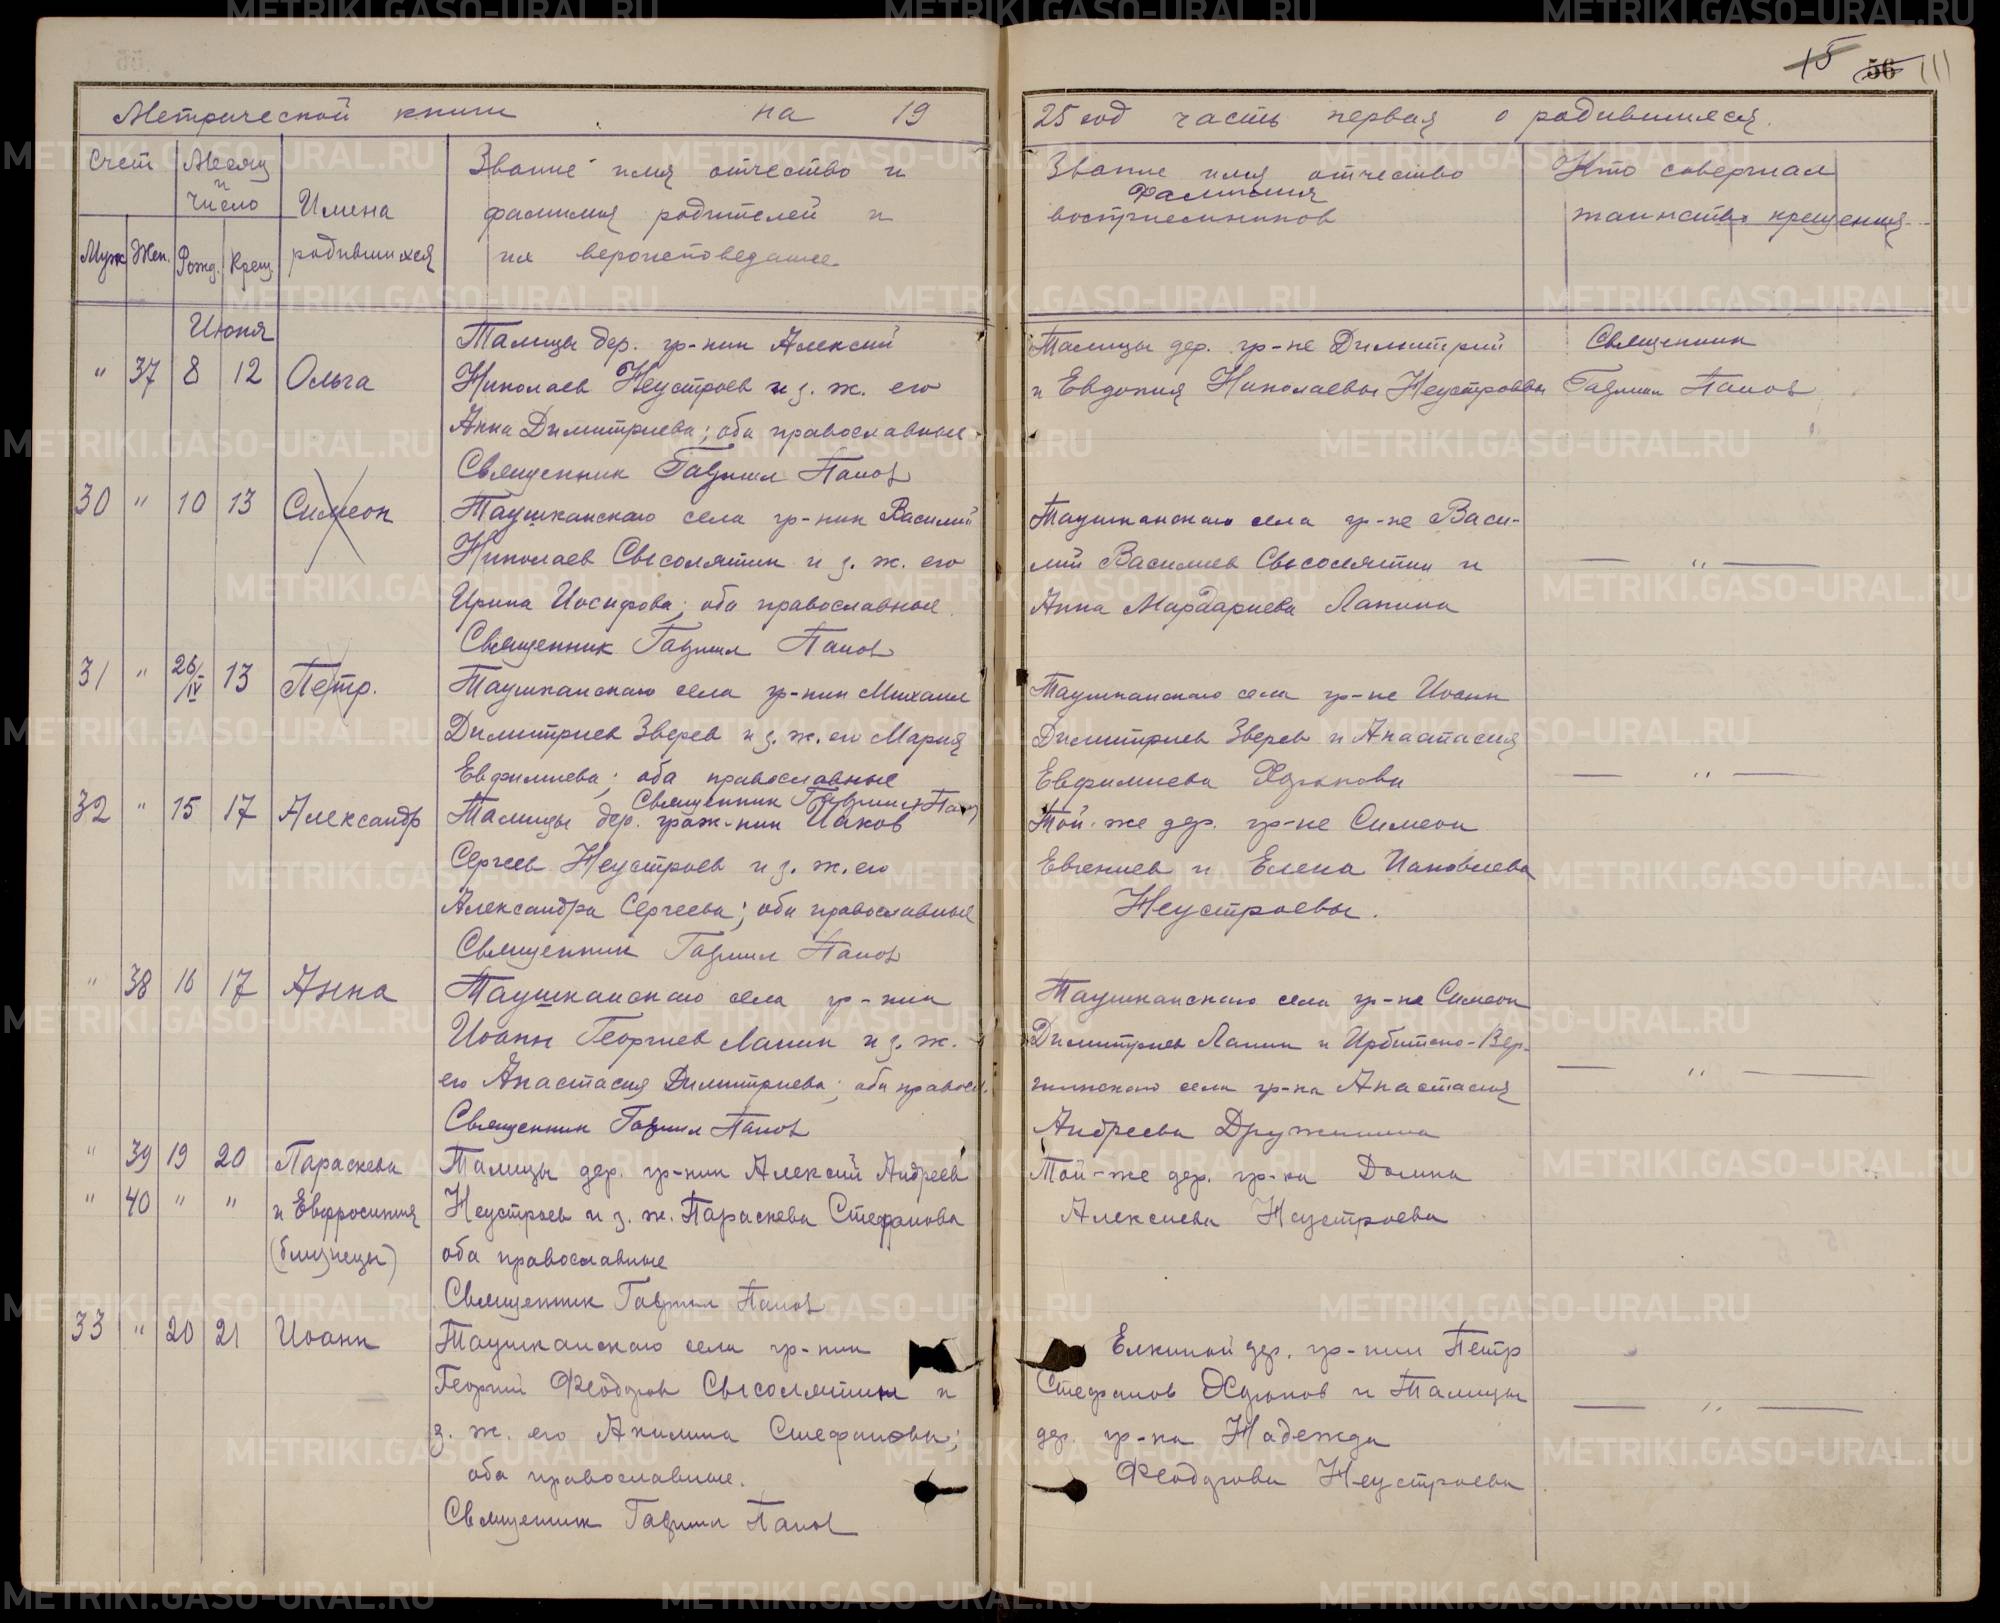 15 56 111
Метрической книги на 19
25 год часть первая о родившихся.
Счет
Месяц и число
Имена родившихся
Звание имя отчество и
фамилия родителей и
их вероисповедание
Муж Жен. Рожд. Крещ.
Звание имя отчество
фамилия
восприемников
Кто совершал
таинство крещения
Июня
" 37 8 12 Ольга
Талицы дер. гр-нин Алексий
Николаев Неустроев и з. ж. его
Анна Димитриева; оба православные
Священник Гавриил Попов
Талицы дер. гр-не Димитрий
и Евдокия Николаевы Неустроевы
Священник
Гавриил Попов
30 " 10 13 Симеон
Таушканскаго села гр-нин Василий
Николаев Свысолятин и з. ж. его
Ирина Иосифова; оба православные
Священник Гавриил Попов
Таушканскаго села гр-не Васи-
лий Васильев Свысолятин и
Анна Мардариева Лапина
— " —
31 " 26/IV 13 Петр.
Таушканскаго села гр-нин Михаил
Димитриев Зверев и з. ж. его Мария
Евфимиева; оба православные
Священник Гавриил Попов
Таушканскаго села гр-не Иоанн
Димитриев Зверев и Анастасия
Евфимиева
— " —
32 " 15 17 Александр
Талицы дер. граж-нин Иаков
Сергеев Неустроев и з. ж. его
Александра Сергеева; оба православные
Священник Гавриил Попов
Той-же дер. гр-не Симеон
Евгениев и Елена Иаковлева
Неустроевы.
" 38 16 17 Анна
Таушканскаго села гр-нин
Иоанн Георгиев Лапин и з. ж.
его Анастасия Димитриева; оба правосл.
Священник Гавриил Попов
Таушканскаго села гр-не Симеон
Димитриев Лапин и Ирбитско-Вер-
шинского села гр-ка Анастасия
Андреева Дружинина
— " —
" 39 19 20 Параскева
" 40 " " и Евфросиния
(близнецы)
Талицы дер. гр-нин Алексий Андреев
Неустроев и з. ж. Параскева Стефанова
оба православные
Священник Гавриил Попов
Той-же дер. гр-ка Домна
Алексиева Неустроева
33 " 20 21 Иоанн
Таушканскаго села гр-нин
Георгий Феодоров Свысолятин и
з. ж. его Акилина Стефанова;
оба православные.
Священник Гавриил Попов
Елкиной дер. гр-нин Петр
Стефанов и Талицы
дер. гр-ка Надежда
Феодорова Неустроева
— " —
METRIKI.GASO-URAL.RU